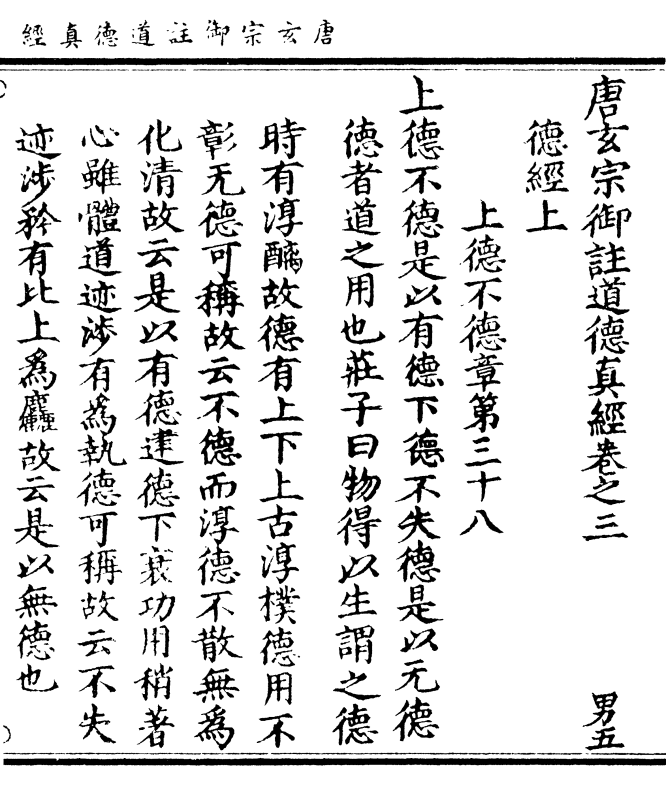 唐玄宗御註道德真經
唐玄宗御註道德真經卷之三　男五
德經上
上德不德章第三十八
上德不德是以有德下德不失德是以无德
德者道之用也莊子曰物得以生謂之德
時有淳醨故德有上下上古淳樸德用不
彰无德可稱故云不德而淳德不散無為
化清故云是以有德建德下衰功用稍著
心雖體道迹涉有為執德可稱故云不失
迹涉矜有比上為麤故云是以無德也